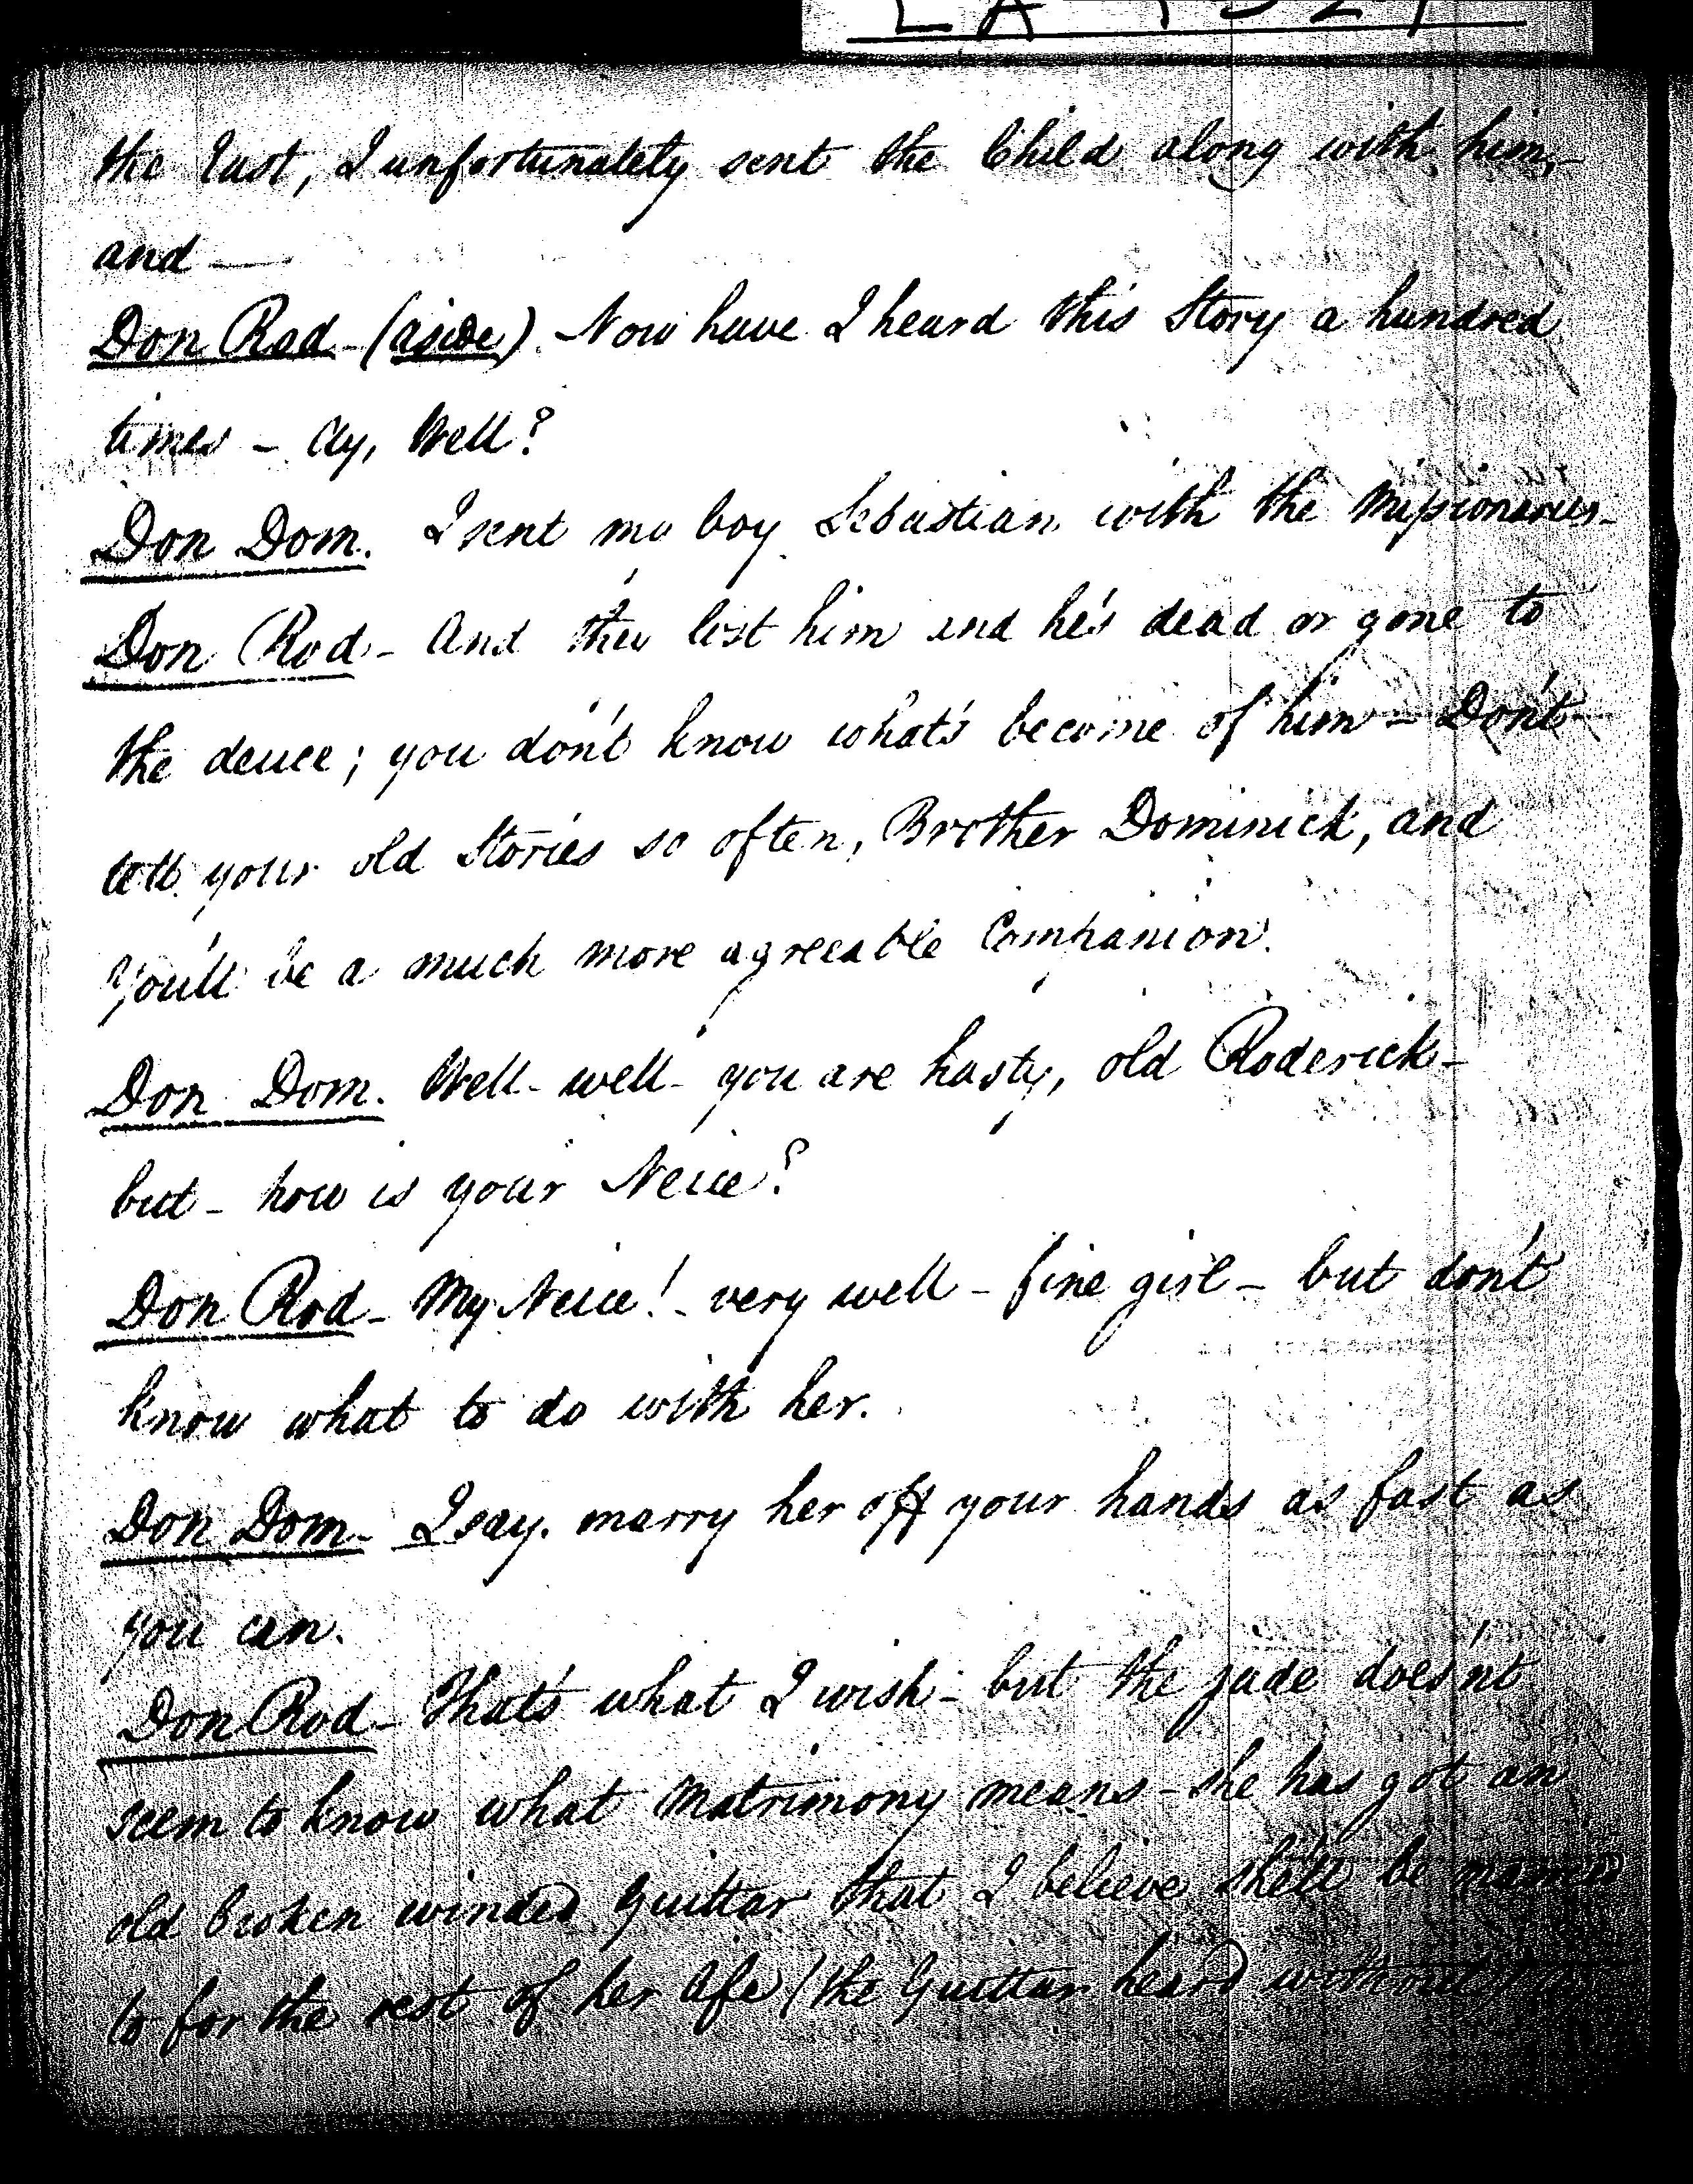 the last, I unfortunately sent the Child along with him,-
and —
Don Rod - (aside). Now have I heard this Story a hundred
times - Ay, Well?
Don Dom. I sent my boy Sebastian with the Missionaries-
Don Rod - And they lost him and he's dead or gone to
the deuce; you don't know what's become of him - Don't
tell your old Stories so often, Brother Dominick, and
You'll be a much more agreeable Companion.
Don Dom. Well - well - you are hasty, old Roderick -
but - how is your Neice?
Don Rod - My Neice! - very well - fine girl - but don't
know what to do with her.
Don Dom - I say. marry her off your hands as fast as
you can.
Don Rod - That's what I wish - but the jade does'nt
seem to know what Matrimony means - she has got an
old broken winded Guittar that I believe she'll be married
to for the rest of her life (the Guittar heard without